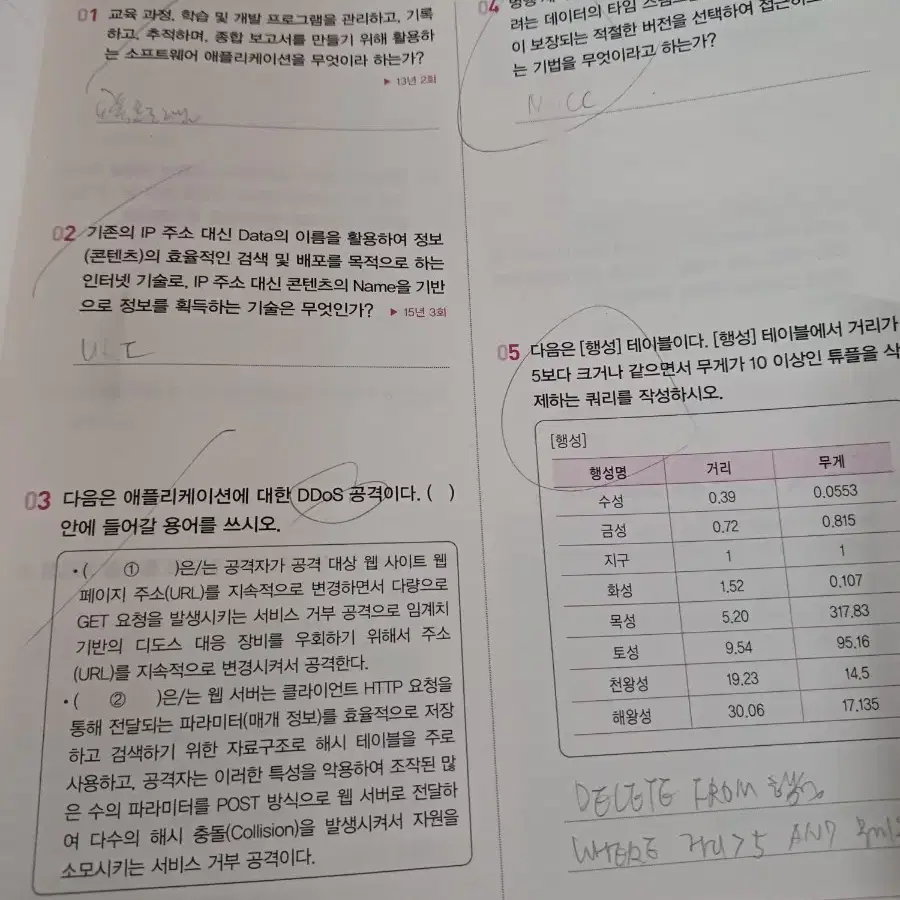 01 교육 과정, 학습 및 개발 프로그램을 관리하고, 기록
하고, 추적하며, 종합 보고서를 만들기 위해 활용하
는 소프트웨어 애플리케이션을 무엇이라 하는가?
▶ 13년 2회
02 기존의 IP 주소 대신 Data의 이름을 활용하여 정보
(콘텐츠)의 효율적인 검색 및 배포를 목적으로 하는
인터넷 기술로, IP 주소 대신 콘텐츠의 Name을 기반
으로 정보를 획득하는 기술은 무엇인가? ▶ 15년 3회
03 다음은 애플리케이션에 대한 DDoS 공격이다. ( )
안에 들어갈 용어를 쓰시오.
• ( ① )은/는 공격자가 공격 대상 웹 사이트 웹
페이지 주소(URL)를 지속적으로 변경하면서 다량으로
GET 요청을 발생시키는 서비스 거부 공격으로 임계치
기반의 디도스 대응 장비를 우회하기 위해서 주소
(URL)를 지속적으로 변경시켜서 공격한다.
• ( ② )은/는 웹 서버는 클라이언트 HTTP 요청을
통해 전달되는 파라미터(매개 정보)를 효율적으로 저장
하고 검색하기 위한 자료구조로 해시 테이블을 주로
사용하고, 공격자는 이러한 특성을 악용하여 조작된 많
은 수의 파라미터를 POST 방식으로 웹 서버로 전달하
여 다수의 해시 충돌(Collision)을 발생시켜서 자원을
소모시키는 서비스 거부 공격이다.
04
려는 데이터의 타임
이 보장되는 적절한 버전을 선택하여
는 기법을 무엇이라고 하는가?
CC
05 다음은 [행성] 테이블이다. [행성] 테이블에서 거리가
5보다 크거나 같으면서 무게가 10 이상인 튜플을 삭
제하는 쿼리를 작성하시오.
[행성]
행성명 거리 무게
수성 0.39 0.0553
금성 0.72 0.815
지구 1 1
화성 1.52 0.107
목성 5.20 317.83
토성 9.54 95.16
천왕성 19.23 14.5
해왕성 30.06 17.135
DELETE FROM 행성
WHERE 거리 > 5 AND